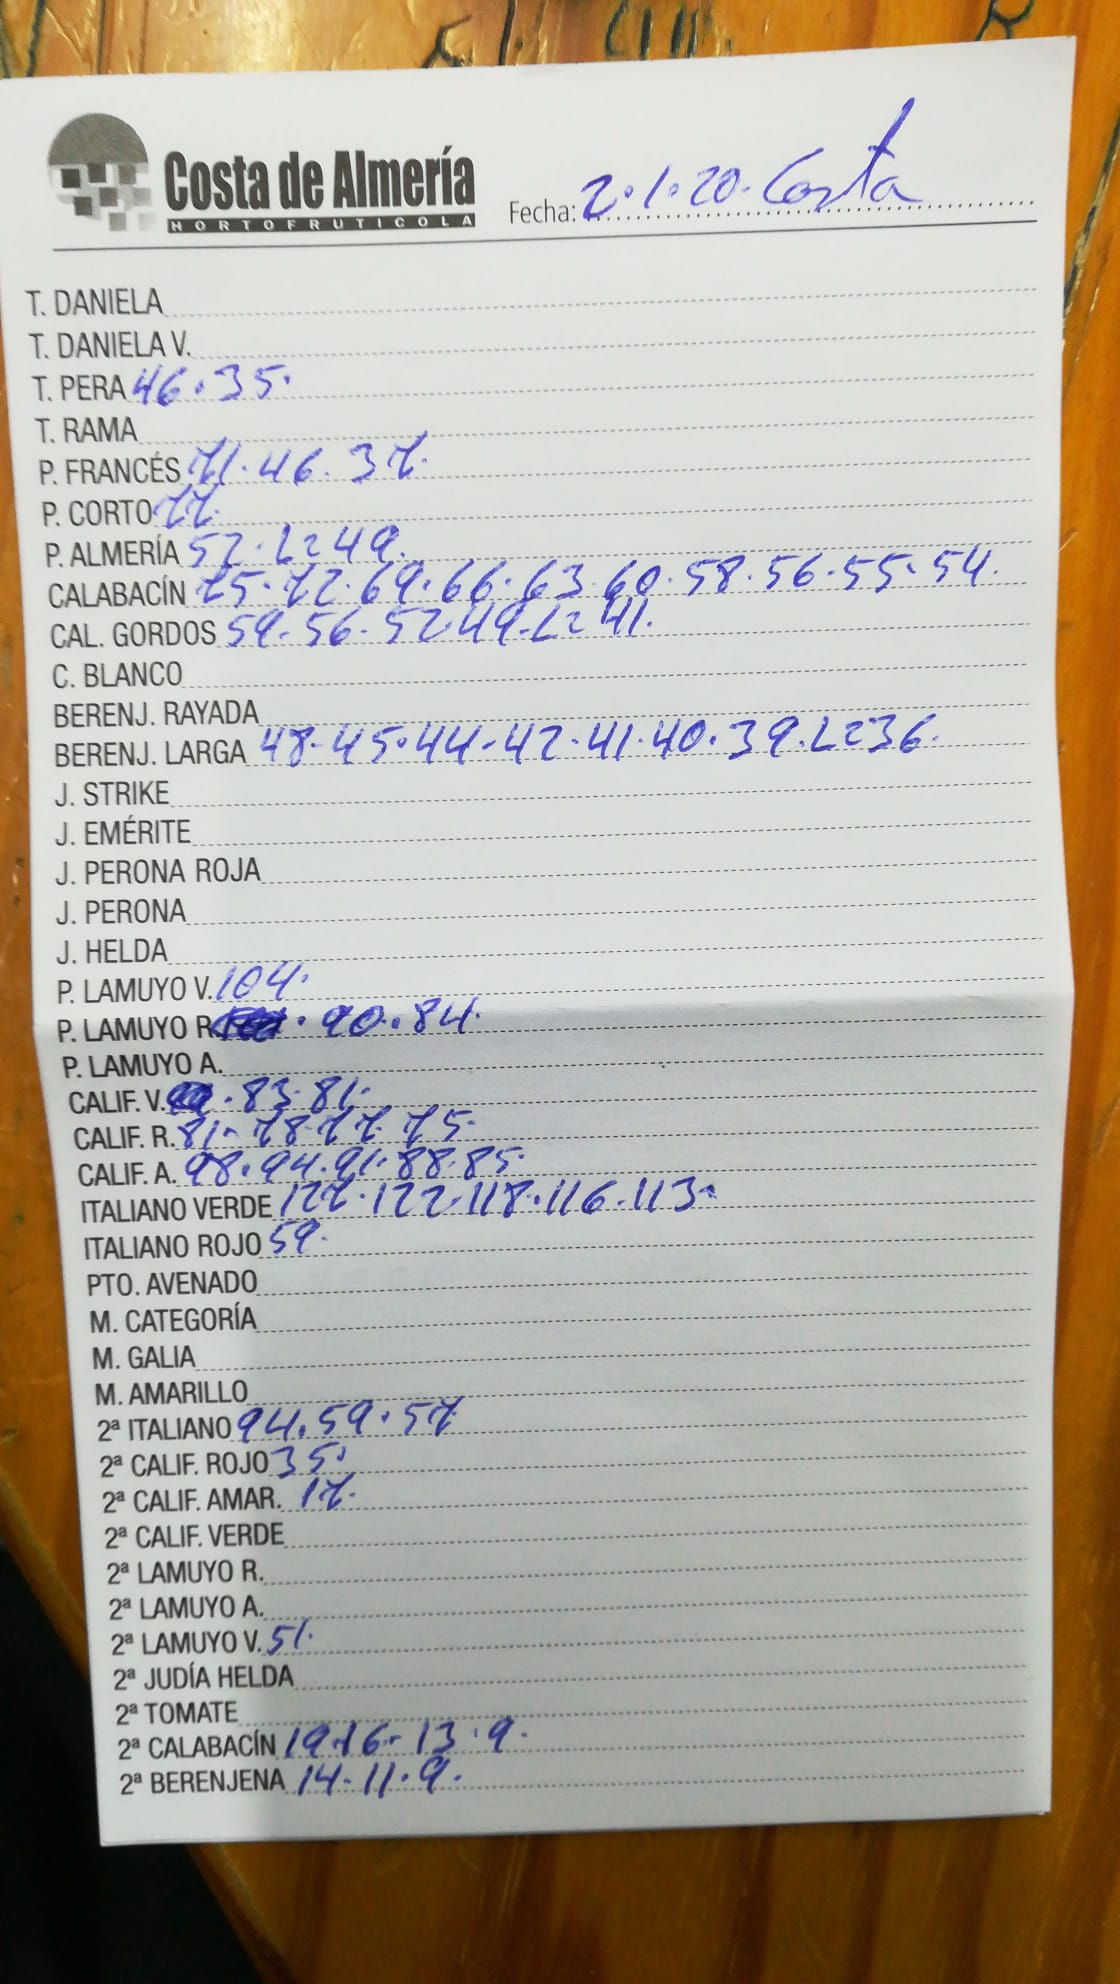 Costa de Almería
HORTOFRUTICOLA
Fecha: 2.1.20. Costa
T. DANIELA
T. DANIELA V.
T. PERA 46.35.
T. RAMA
P. FRANCÉS 71.46.37.
P. CORTO 77.
P. ALMERÍA 52.L=49.
CALABACÍN 75.72.69.66.63.60.58.56.55.54.
CAL. GORDOS 59-56-52.49-L=41.
C. BLANCO
BERENJ. RAYADA
BERENJ. LARGA 48-45.44-42.41.40.39.L=36.
J. STRIKE
J. EMÉRITE
J. PERONA ROJA
J. PERONA
J. HELDA
P. LAMUYO V. 104.
P. LAMUYO R. . 90.84.
P. LAMUYO A.
CALIF. V. . 83.81.
CALIF. R. 81-78-77.75.
CALIF. A. 98.94.91.88.85.
ITALIANO VERDE 127.122.118.116.113.
ITALIANO ROJO 59.
PTO. AVENADO
M. CATEGORÍA
M. GALIA
M. AMARILLO
2ª ITALIANO 94.59.57
2ª CALIF. ROJO 35.
2ª CALIF. AMAR. 17.
2ª CALIF. VERDE
2ª LAMUYO R.
2ª LAMUYO A.
2ª LAMUYO V. 51.
2ª JUDÍA HELDA
2ª TOMATE
2ª CALABACÍN 19.16-13.9.
2ª BERENJENA 14-11.9.